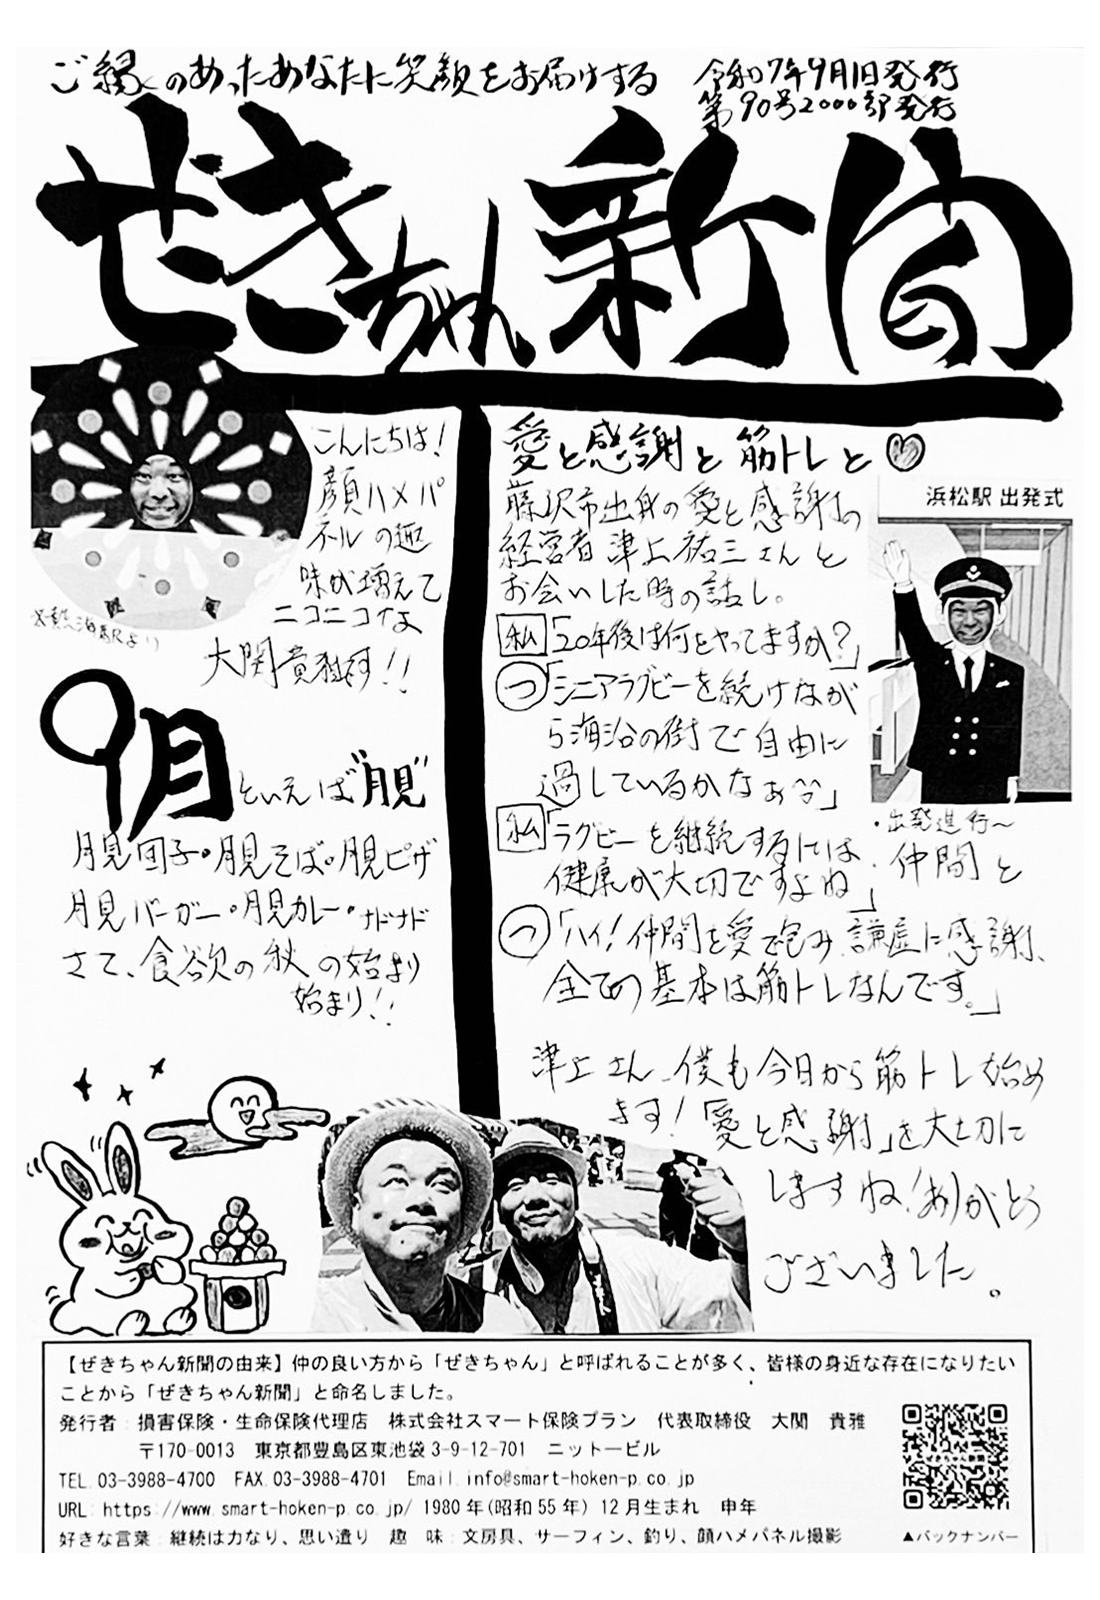 ご縁のあったあなたに笑顔をお届けする
令和7年9月1日発行
第90号2000部発行
ぜきちゃん新聞
こんにちは!
顔ハメパ
ネルの趣
味が増えて
ニコニコな
大関貴雅です!!
9月といえば"月見"
月見団子・月見そば・月見ピザ
月見バーガー・月見カレー・ナドナド
さて、食欲の秋の始まり
始まり!!
愛と感謝と筋トレと♡
藤沢市出身の愛と感謝の
経営者津上祐三さんと
お会いした時の話し。
私「20年後は何をやってますか?」
つ「シニアラグビーを続けなが
ら海沿の街で自由に
過しているかなぁ^^」
私「ラグビーを継続するには
健康が大切ですよね」
つ「ハイ!仲間を愛で包み、謙虚に感謝、
全ての基本は筋トレなんです。」
浜松駅 出発式
・出発進行〜
仲間と
津上さん、僕も今日から筋トレ始め
ます!「愛と感謝」を大切に
しますね!ありがとう
ございました。
【ぜきちゃん新聞の由来】仲の良い方から「ぜきちゃん」と呼ばれることが多く、皆様の身近な存在になりたい
ことから「ぜきちゃん新聞」と命名しました。
発行者:損害保険・生命保険代理店 株式会社スマート保険プラン 代表取締役 大関 貴雅
〒170-0013 東京都豊島区東池袋3-9-12-701 ニットービル
TEL.03-3988-4700 FAX.03-3988-4701 Email.info@smart-hoken-p.co.jp
URL:https://www.smart-hoken-p.co.jp/ 1980年(昭和55年)12月生まれ 申年
好きな言葉:継続は力なり、思い遣り 趣 味:文房具、サーフィン、釣り、顔ハメパネル撮影
ぜきちゃん新聞
▲バックナンバー